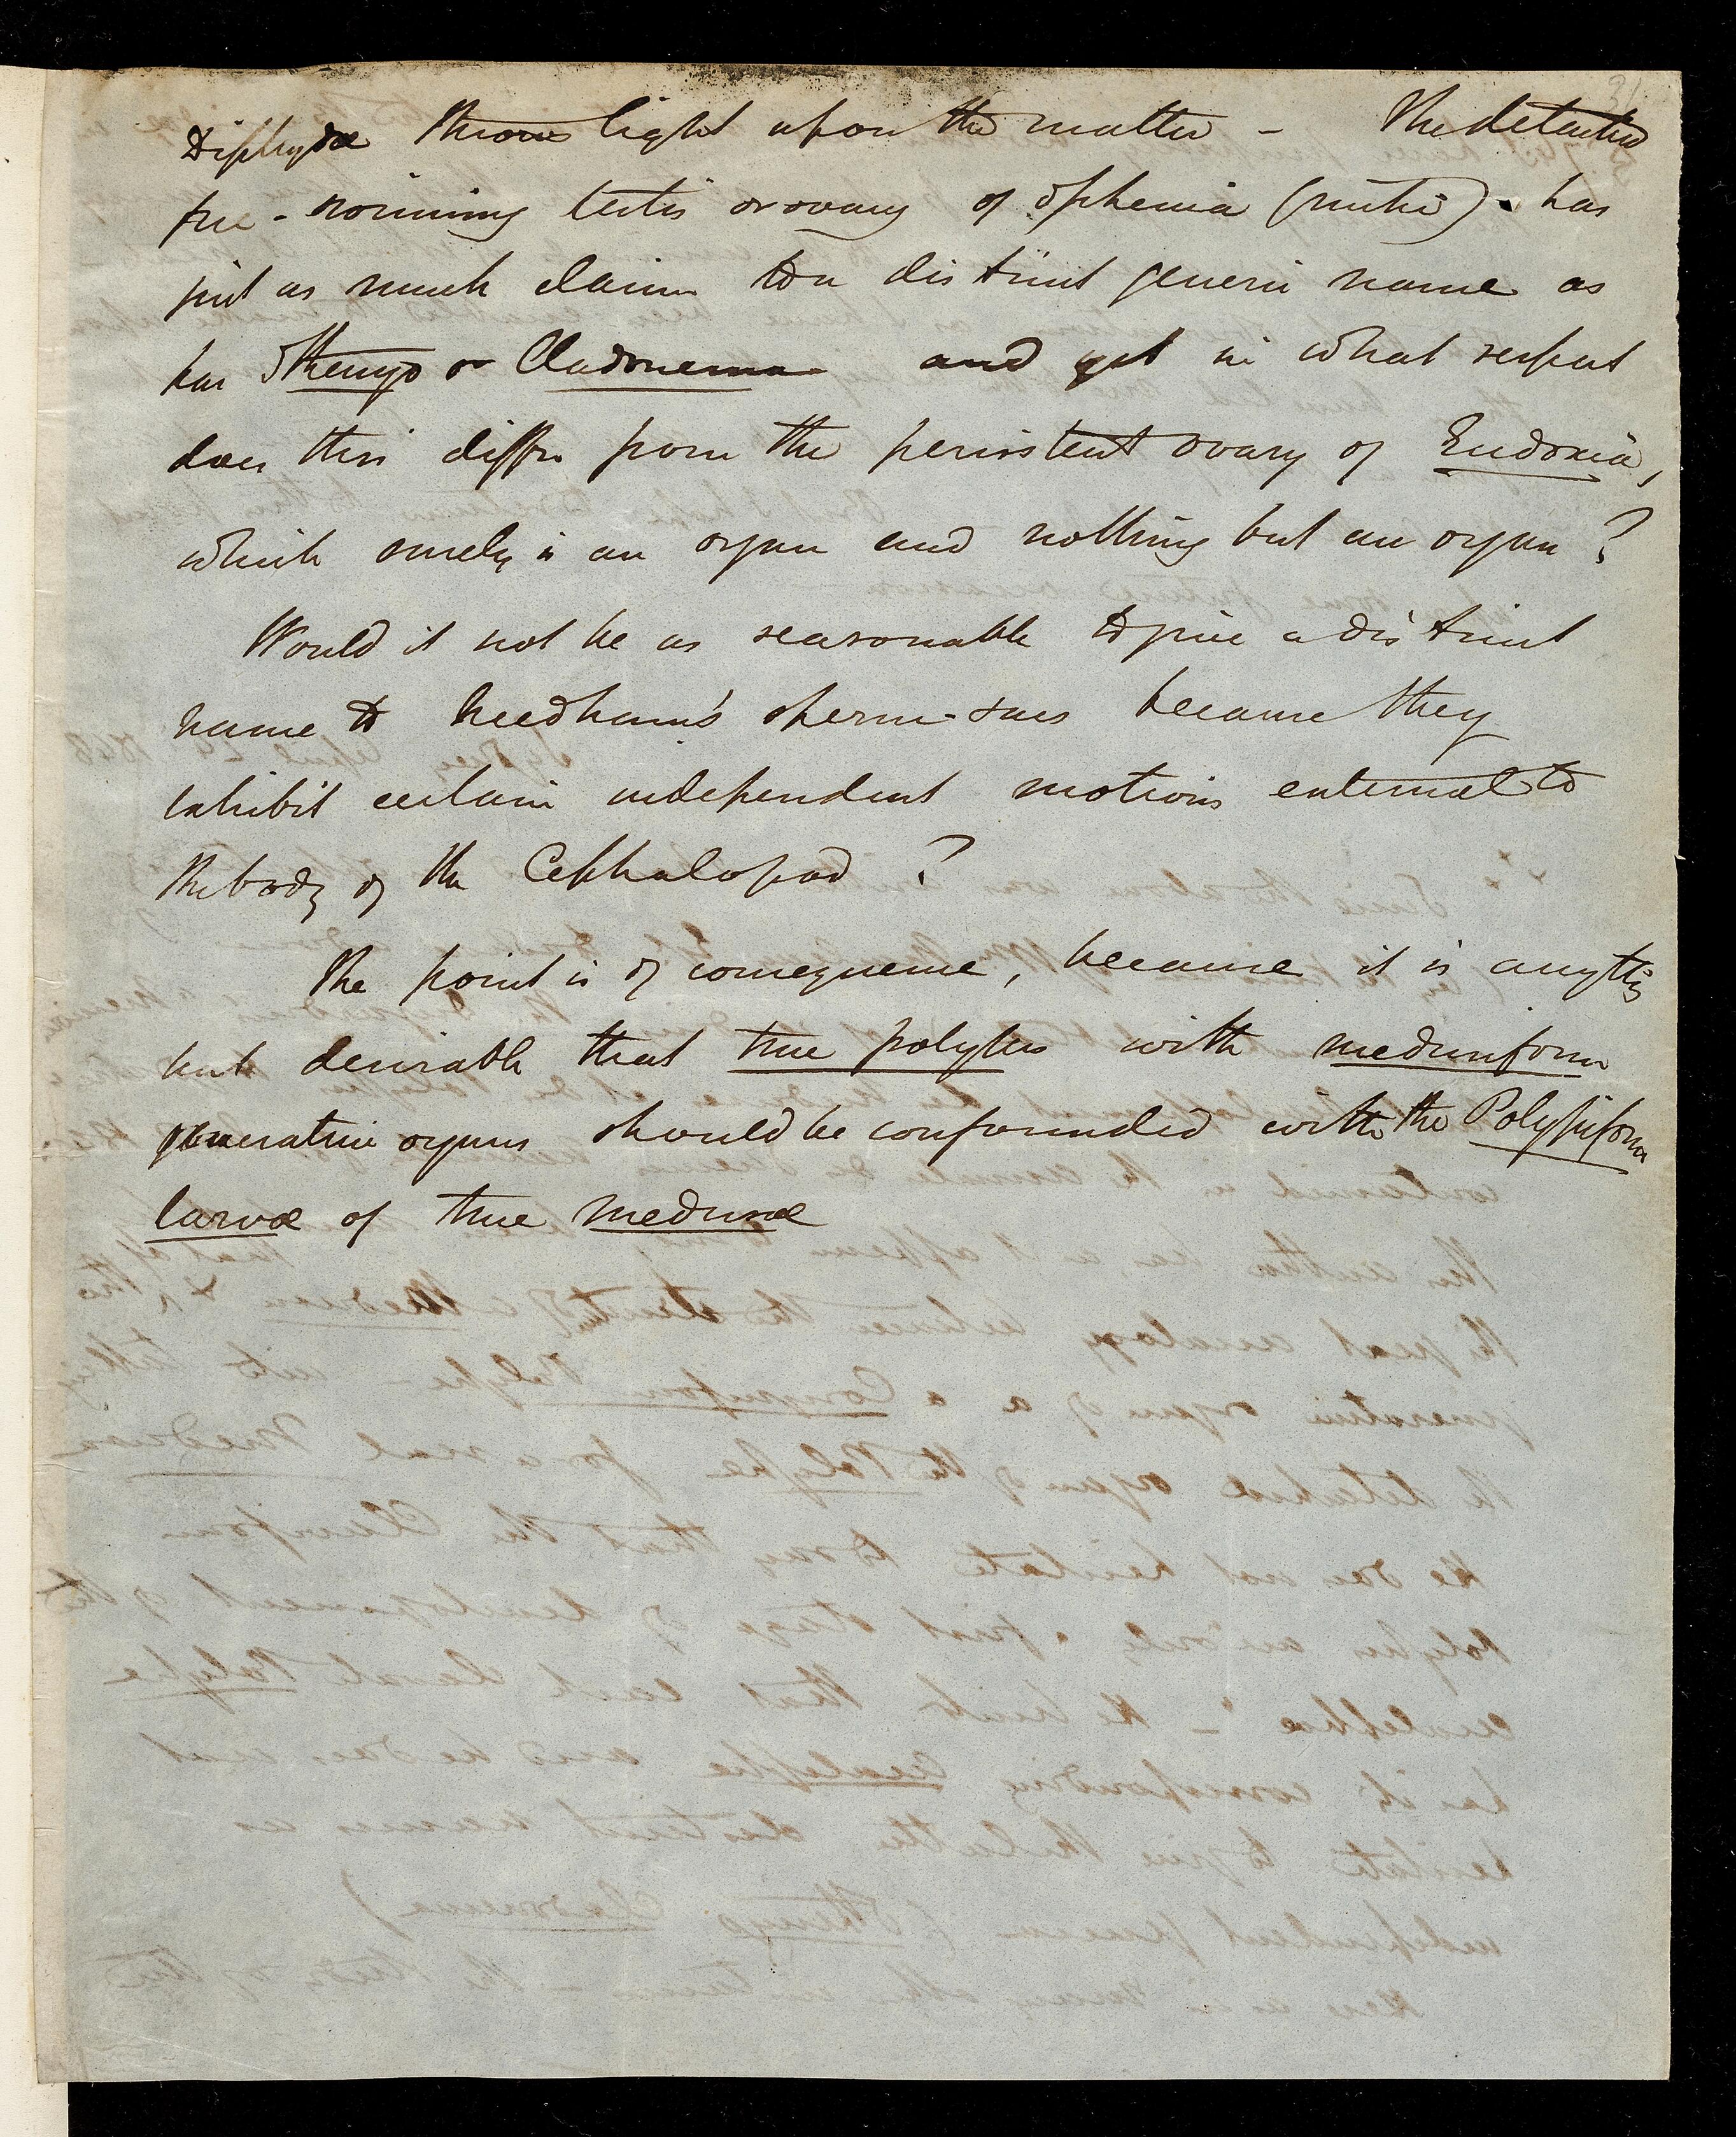 31
Diphydæ throws light upon the matter – The detached
free-swimming testis or ovary of Sphenia (mihi) has
just as much claim to a distinct generic name as
has Sthenyo or Cladonema and yet in what respect
does this differ from the persistent ovary of Eudoxia,
which surely is an organ and nothing but an organ?
Would it not be as reasonable to give a distinct
name to Needham's sperm-sacs because they
exhibit certain independent motions external to
the body of the Cephalopod?
The point is of consequence, because it is anything
but desirable that true polypes with medusiform
generative organs should be confounded with the Polypiform
larvæ of true medusæ